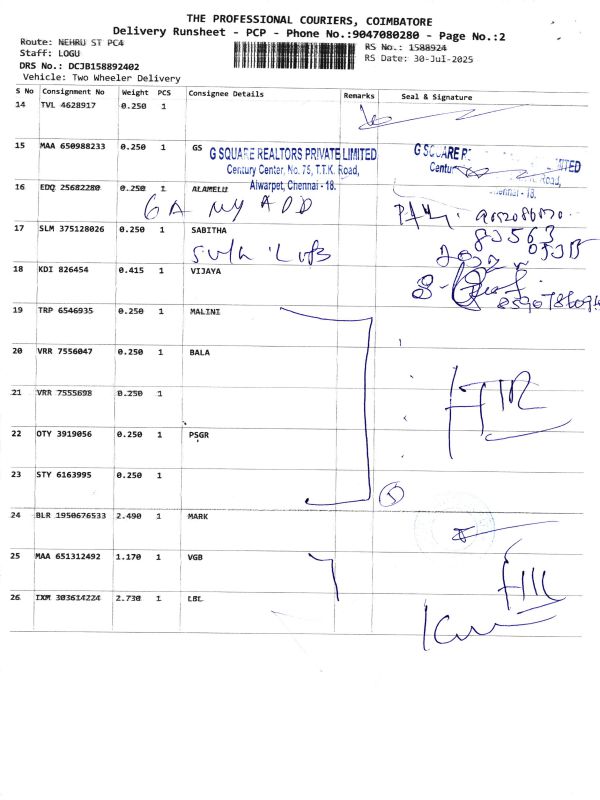 THE PROFESSIONAL COURIERS, COIMBATORE
Delivery Runsheet - PCP - Phone No.:9047080280 - Page No.:2
Route: NEHRU ST PC4
RS No.: 1588924
Staff: LOGU
RS Date: 30-Jul-2025
DRS No.: DCJB158892402
Vehicle: Two Wheeler Delivery
S No Consignment No Weight PCS Consignee Details Remarks Seal & Signature
14 TVL 4628917 0.250 1
15 MAA 650988233 0.250 1 GS
G SQUARE REALTORS PRIVATE LIMITED
Century Center, No. 75, T.T.K. Road,
Alwarpet, Chennai - 18.
16 EDQ 25682280 0.250 1 ALAMELU
17 SLM 375128026 0.250 1 SABITHA
18 KDI 826454 0.415 1 VIJAYA
19 TRP 6546935 0.250 1 MALINI
20 VRR 7556047 0.250 1 BALA
21 VRR 7555698 0.250 1
22 OTY 3919056 0.250 1 PSGR
23 STY 6163995 0.250 1
24 BLR 1950676533 2.490 1 MARK
25 MAA 651312492 1.170 1 VGB
26 IXM 303614224 2.730 1 LBL